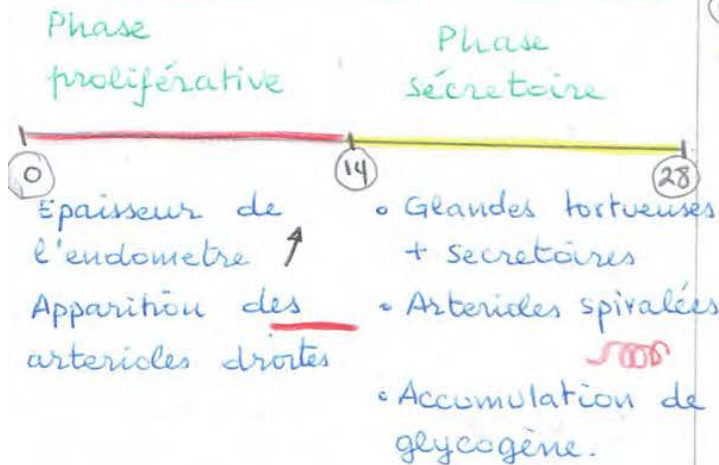 Phase
proliférative
Phase
sécretoire
0
14
28
Epaisseur de
l'endometre ↑
Apparition des
arterioles droites
• Glandes tortueuses
+ secretoires
• Arterioles spiralées
• Accumulation de
glycogène.